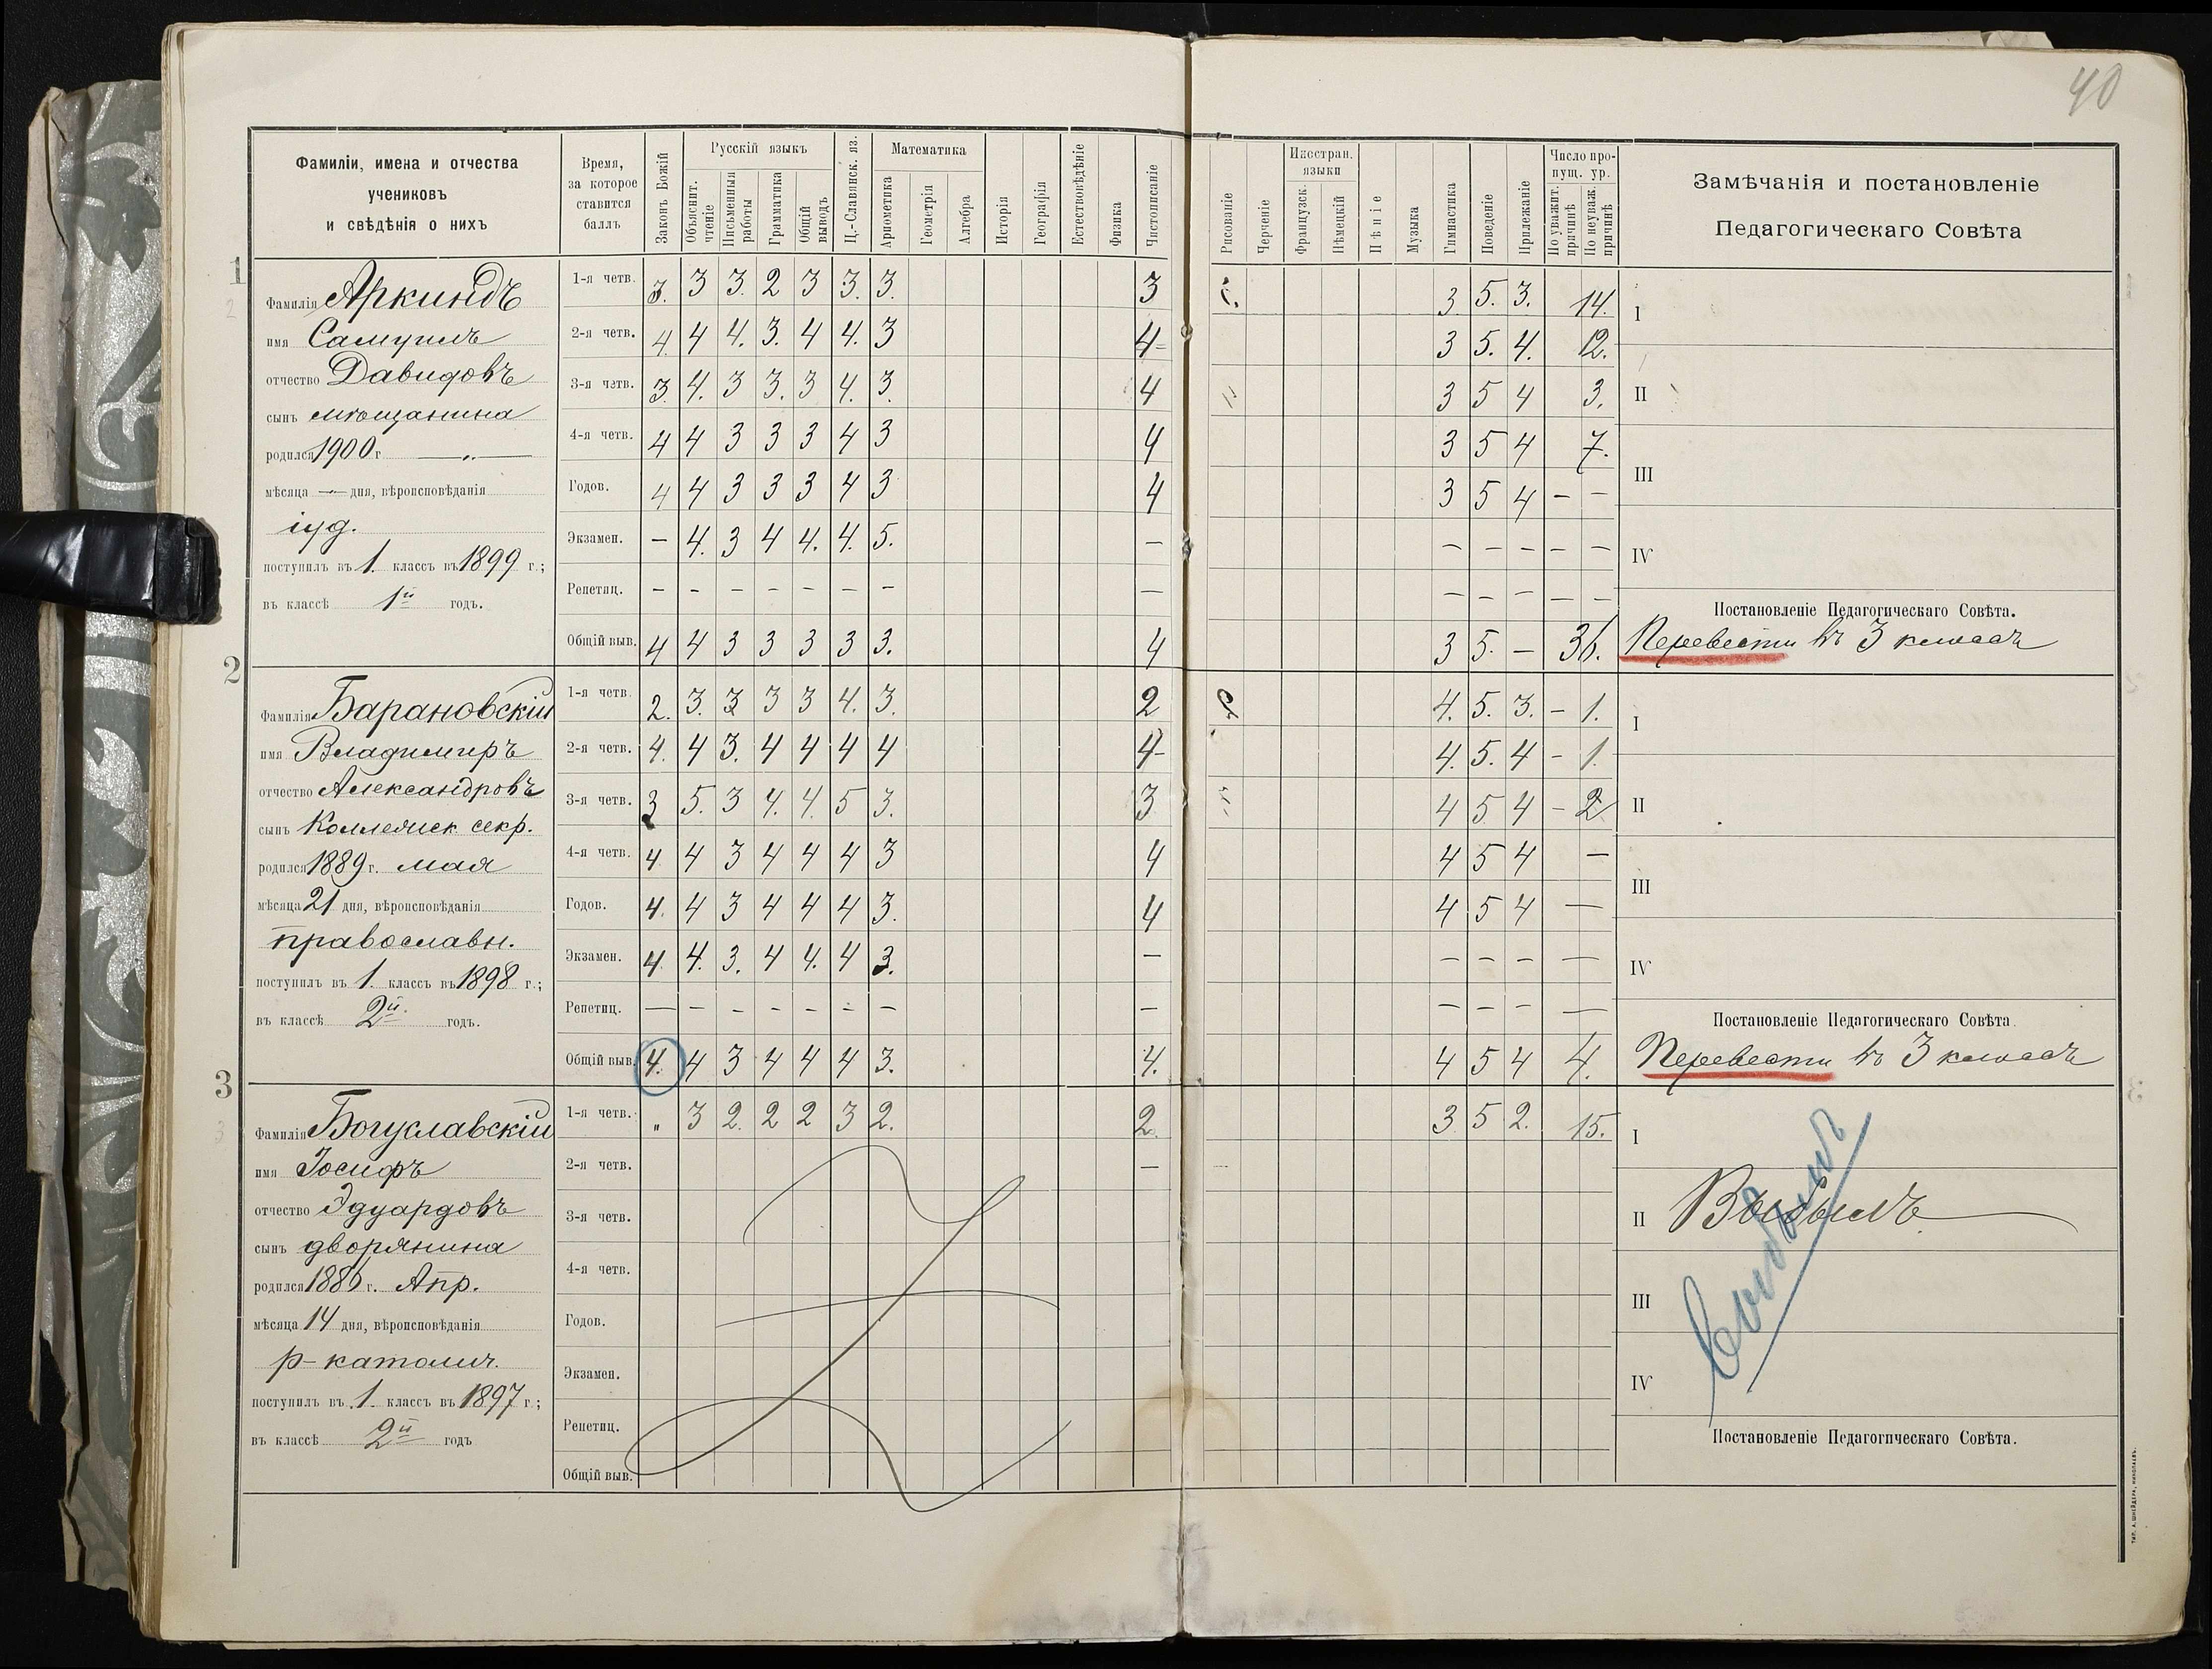 40
Фамиліи, имена и отчества
учениковъ
и свѣдѣнія о нихъ
Время,
за которое
ставится
баллъ
Законъ Божій
Русскій языкъ
Объяснит. чтеніе
Письменныя работы
Грамматика
Общій выводъ
Ц.-Славянск. яз.
Математика
Ариѳметика
Геометрія
Алгебра
Исторія
Географія
Естествовѣдѣніе
Физика
Чистописаніе
Рисованіе
Черченіе
Иностран. языки
Французск.
Нѣмецкій
Пѣніе
Музыка
Гимнастика
Поведеніе
Прилежаніе
Число пропущ. ур.
По уважит. причинѣ
По неуваж. причинѣ
Замѣчанія и постановленіе
Педагогическаго Совѣта
1
Фамилія Аркиндъ
имя Самуилъ
отчество Давидовъ
сынъ мѣщанина
родился 1900 г. — „ —
мѣсяца — „ — дня, вѣроисповѣданія
іуд.
поступилъ въ 1. классъ въ 1899 г.;
въ классѣ 1й годъ.
1-я четв. 3. 3 3. 2 3 3. 3. 3 3 5. 3. 14.
2-я четв. 4. 4 4. 3. 4 4. 3 4 3 5. 4. 12.
3-я четв. 3. 4. 3 3. 3 4. 3. 4 3 5 4 3.
4-я четв. 4 4 3 3 3 4 3 4 3 5 4 7.
Годов. 4 4 3 3 3 4 3 4 3 5 4 — —
Экзамен. — 4. 3 4 4. 4. 5. — — — — — —
Репетиц. — — — — — — — — — — — — —
Общій выв. 4 4 3 3 3 3 3. 4 3 5. — 36.
I
II
III
IV
Постановленіе Педагогическаго Совѣта.
Перевести въ 3 классъ
2
Фамилія Барановскій
имя Владимиръ
отчество Александровъ
сынъ Коллежск. секр.
родился 1889 г. мая
мѣсяца 21 дня, вѣроисповѣданія
православн.
поступилъ въ 1. классъ въ 1898 г.;
въ классѣ 2й годъ.
1-я четв. 2. 3. 3 3 3 4. 3. 2 4. 5. 3. — 1.
2-я четв. 4. 4 3. 4 4 4 4 4 4. 5. 4 — 1.
3-я четв. 3 5. 3 4. 4. 5 3. 3 4 5 4 — 2
4-я четв. 4 4 3 4 4 4 3 4 4 5 4 —
Годов. 4. 4 3 4 4 4 3. 4 4 5 4 —
Экзамен. 4. 4. 3. 4 4. 4 3. — — — — —
Репетиц. — — — — — — — — — — — —
Общій выв. 4. 4 3 4 4 4 3. 4. 4 5 4 4.
I
II
III
IV
Постановленіе Педагогическаго Совѣта.
Перевести въ 3 классъ
3
Фамилія Богуславскій
имя Іосифъ
отчество Эдуардовъ
сынъ дворянина
родился 1886 г. Апр.
мѣсяца 14 дня, вѣроисповѣданія
р-католич.
поступилъ въ 1. классъ въ 1897 г.;
въ классѣ 2й годъ
1-я четв. „ 3 2. 2 2 3 2. 2. 3 5 2. 15.
2-я четв. —
3-я четв.
4-я четв.
Годов.
Экзамен.
Репетиц.
Общій выв.
I
II Выбылъ
III
IV
Постановленіе Педагогическаго Совѣта.